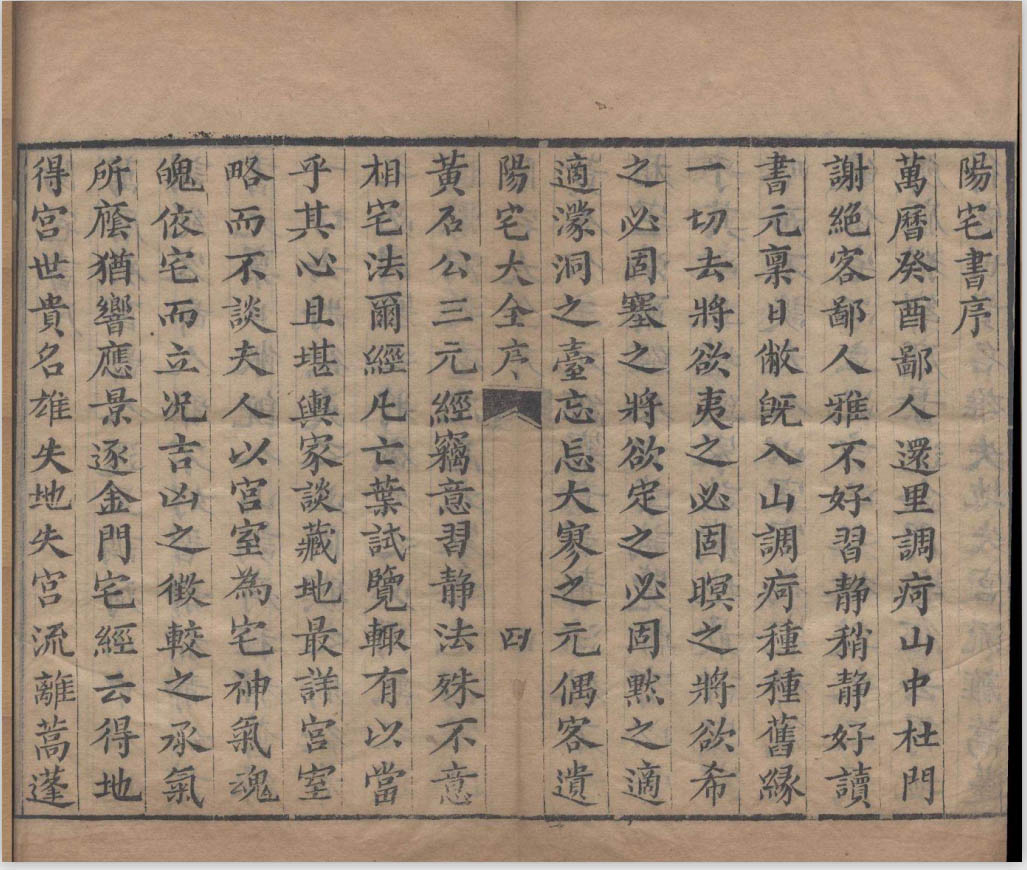 陽宅書序
萬曆癸酉鄙人還里調疴山中杜門
謝絕客鄙人雅不好習靜稍靜好讀
書元稟日敝旣入山調疴種種舊緣
一切去將欲夷之必固暝之將欲希
之必固塞之將欲定之必固黙之適
適濛洞之臺忘忌大寥之元偶客遺
陽宅大全序 四
黃石公三元經竊意習靜法殊不意
相宅法爾經凡亡葉試覽輙有以當
乎其心且堪輿家談藏地最詳宮室
略而不談夫人以宮室為宅神氣魂
魄依宅而立况吉凶之徵較之承氣
所廕猶響應景逐金門宅經云得地
得宮世貴名雄失地失宮流離蒿蓬